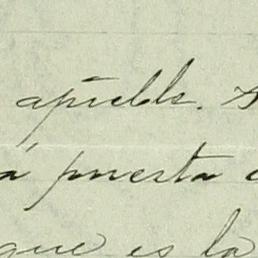 apúebls.
á puesta
que es la